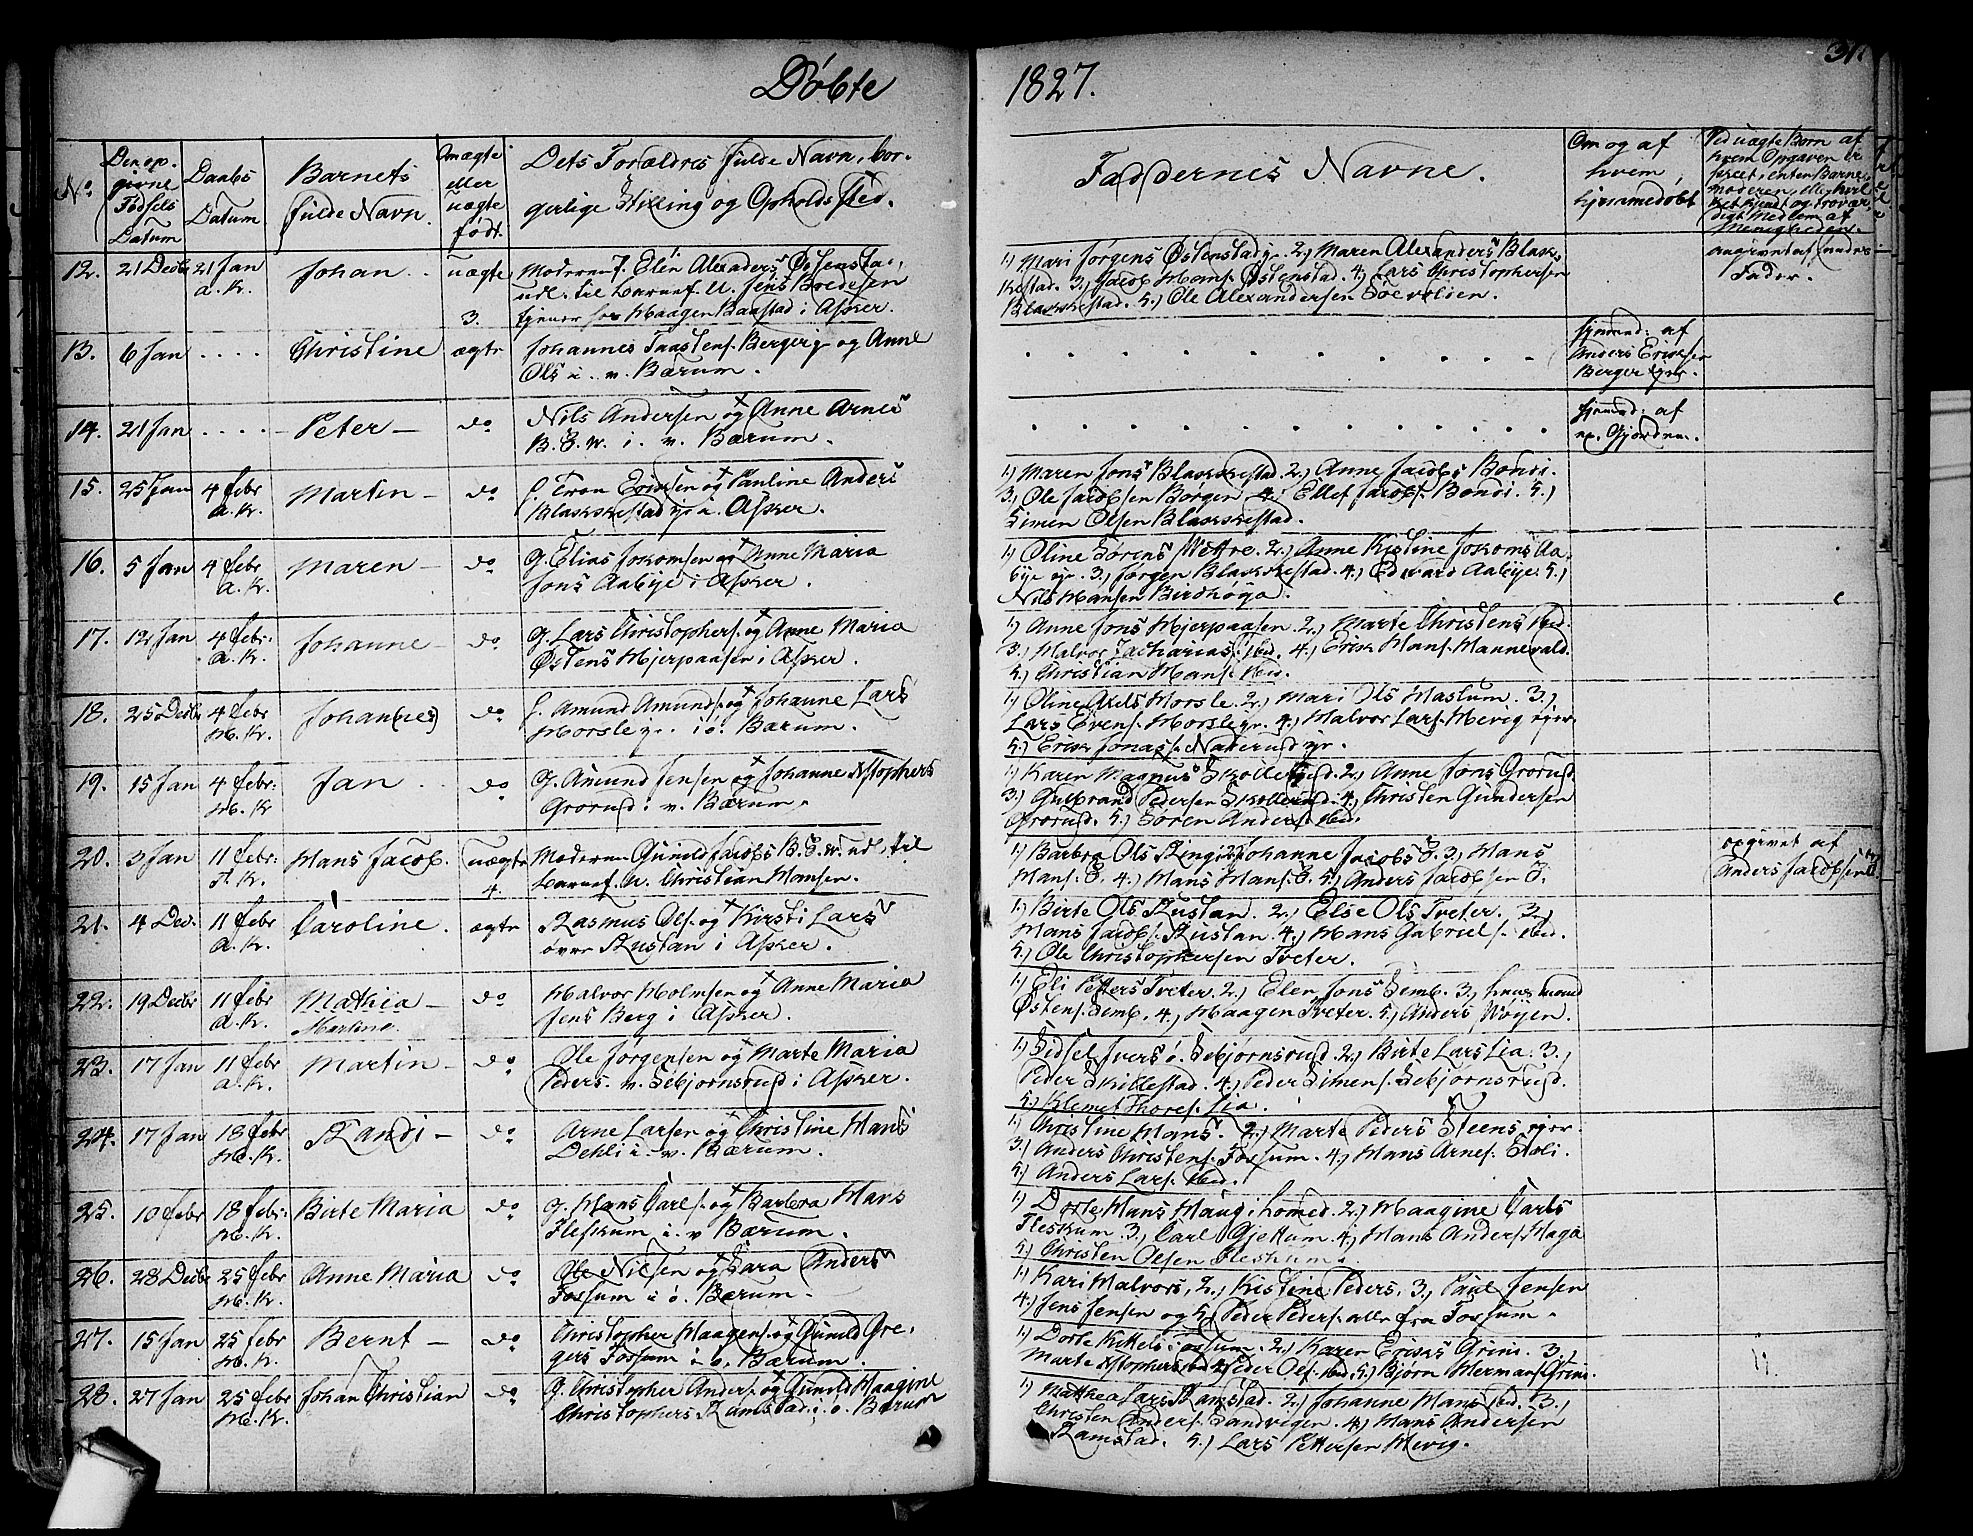 Døbte
1827.
31.
No.
Den op-
givne
Fødsels
Datum
Daabs
Datum
Barnets
fulde Navn.
Om ægte
eller
uægte
født.
Dets Forældres fulde Navn, bor-
gerlige Stilling og Opholdssted.
Faddernes Navne.
Om og af
hvem
hjemmedøbt
Ved uægte Børn af
hvem Opgaven er
skeet, enten Barne-
moderen, eller hvil-
ket kjendt og trovær-
digt Medlem af
Menigheden.
12. 21 Decbr 21 Jan Johan . . uægte
a. K. 3.
Moderen P. Elen Alexanders Østensta,
udl. til Barnef. U. Jens Bredesen
tjener hos Haagen Baastad i Asker.
1.) Mari Jørgens Østenstady. 2.) Maren Alexanders Blak-
kestad. 3.) Jacob Hans. Østenstad. 4.) Lars Christophersen
Blakkestad. 5.) Ole Alexandersen
Fader.
13. 6 Jan . . . . Christine ægte
Johannes Bergerg og Anne
Ols i v. Bærum.
hjemmed: af
Anders Eriksen
Berger
14. 21 Jan . . . . Peter - do
Nils Andersen og Anne Arnes
B. S. W. i. v. Bærum.
hjemmed: af
15. 25 Jan 4 febr Martin - do
a. K.
Eriksen og Pauline Anders
Blakkestad i. Asker.
1.) Maren Jons Blakkestad. 2.) Anne Jacobs Bondi.
3.) Ole Jacobsen Børgen 4.) Ellef Jacobs. Bondi. 5.)
Simen Olsen Blakkestad.
16. 5 Jan 4 febr Maren - do
a. K.
g. Elias Joramsen og Anne Maria
Jons Aabye i Asker.
1.) Oline Sørens Wettre. 2.) Anne Kistine Aa-
bye gr. 3.) Jørgen Blakkestad. 4.) Edevard Aabye. 5.)
Nils Hansen
17. 12 Jan 4 febr: Johanne - do
a. K.
g. Lars Christophers. og Anne Maria
Østens Hjerpaasen i Asker.
1.) Anne Jons Hjerpaasen 2.) Marte Christens Ibid.
3.) Halvor Zacharias. Ibid. 4.) Erik Hans. Hannevald.
5.) Christian Hans. Ibid.
18. 25 Decbr 4 febr Johan(nes) do
H. K.
f. Amund Amunds. og Johanne Lars
Horsle i ø. Bærum.
1.) Oline Axels Horsle. 2.) Mari Ols Haslum. 3.)
Lars Evens. Horsle gr. 4.) Halvor Lars. Hevig
5.) Erik Jonas. Naderud gr.
19. 15 Jan 4 febr: Jan . . do
H. K
g. Amund Jensen og Johanne Xstophers
Grorud i v. Bærum.
1.) Karen Magnus Skollerud. 2.) Anne Jons Grorud
3.) Gulbrand Pedersen Skollerud. 4.) Christen Gundersen
Grorud. 5.) Søren Anders. Ibid.
20. 3 Jan 11 febr: Hans Jacob. uægte
T. K. 4.
Moderen Gunild Jacobs B. S. W. udl. til
Barnef. U. Christian Hansen.
1.) Barbra Ols Ringi 2.) Johanne Jacobs S. 3.) Hans
Hans. S. 4.) Hans Hans. S. 5.) Anders Jacobsen S.
opgivet af
Anders Jacobsen
21. 4 Dec. 11 febr Caroline. ægte
a. K.
Rasmus Ols. og Kirsti Lars
øvre Rustan i Asker.
1.) Birte Ols Rustan. 2.) Else Ols Tveter. 3.)
Hans Jacobs. Rustan. 4.) Hans Gabriels. Ibid.
5.) Ole Christophersen Tveter.
22. 19 Decbr 11 febr Mathia - do
a. K. Martine.
Halvor Holmsen og Anne Maria
Jens Berg i Asker.
1.) Eli Petters Tveter. 2.) Elen Jons Semb. 3.)
Østens. Semb. 4.) Haagen Tveter. 5.) Anders Wøyen.
23. 17 Jan 11 febr Martin - do
a. K.
Ole Jørgensen og Marte Maria
Peders. v. Sebjørnsrud i Asker.
1.) Sidsel Ivers ø. Sebjørnsrud. 2.) Birte Lars Lia. 3.)
Peder Skillestad. 4.) Peder Simens. Sebjørnsrud.
5.) Klemet Thores. Lia.
24. 17 Jan 18 febr Randi - do
H. K.
Arne Larsen og Christine Hans
Dehli i. v. Bærum.
1.) Christine Hans. 2.) Marte Peders Steens
3.) Anders Christens. Fossum. 4.) Hans Arnes.
5.) Anders Lars. Ibid.
25. 10 febr 18 febr: Birte Maria do
H. K.
g. Hans Carls. og Barbra Hans
Fleskum i. v Bærum.
1.) Dorte Hans Haug i Lomed. 2.) Haagine Carls
Fleskum. 3.) Carl Gjettum. 4.) Hans Anders. Haga
5.) Christen Olsen Fleskum.
26. 28 Decbr 25 febr Anne Maria do
H. K.
Ole Nilsen og Sara Anders
Fossum i ø. Bærum.
1.) Kari Halvors, 2.) Kistine Peders, 3.) Paul Jensen
4.) Jens Jensen og 5.) Peder Peders. alle fra Fossum.
27. 15 Jan 25 febr Bernt - do
H. K.
Christopher Haagens. og Gunild Gre-
gers Fossum i ø. Bærum.
1.) Dorte Kittels i Fossum. 2.) Karen Eriks Grini. 3.)
Marte Xstophers Ibid. 4.) Peder Ols. Ibid. 5.) Bjørn Hermans. Grini.
28. 27 Jan 25 febr Johan Christian do
H. K.
g. Christopher Anders. og Gunild Haagine
Christophers Ramstad. i. ø. Bærum
1.) Mathea Lars Ramstad. 2.) Johanne Hans Ibid. 3.)
Christen Anders. Sandvigen. 4.) Hans Andersen
Ramstad. 5.) Lars Pettersen Hevig.